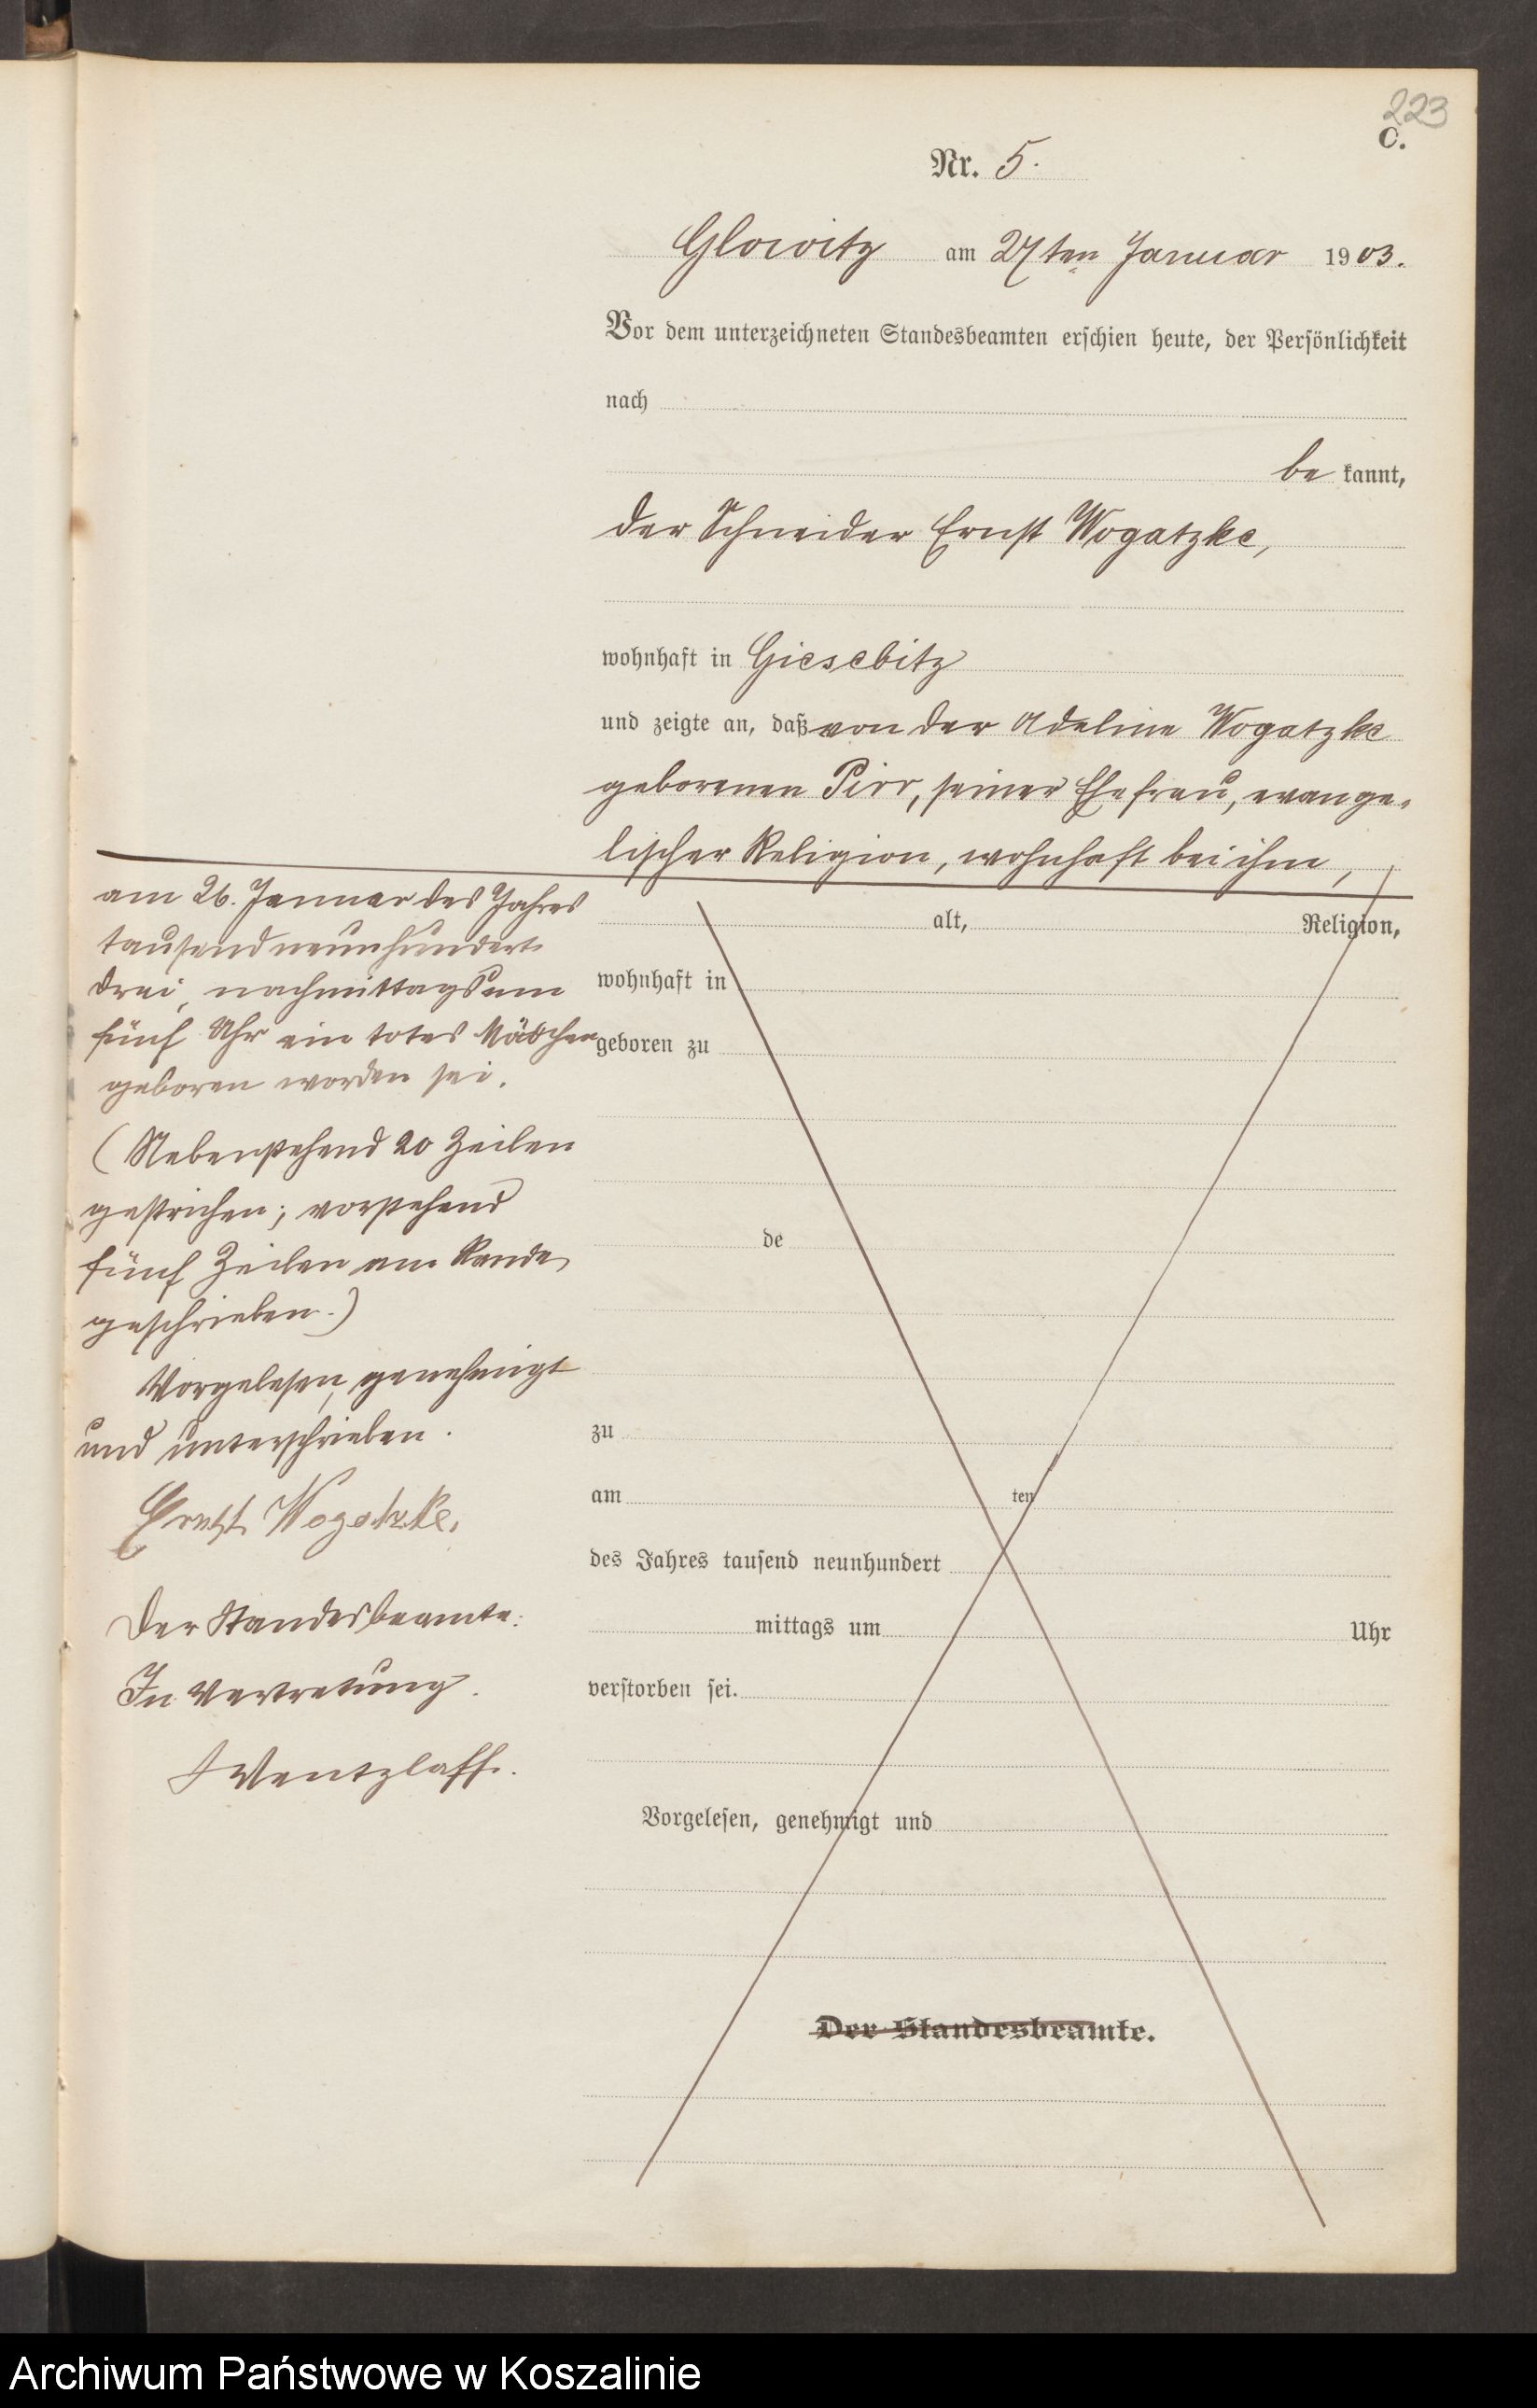 223
C.
Nr. 5.
Glowitz am 27ten Januar 1903.
Vor dem unterzeichneten Standesbeamten erschien heute, der Persönlichkeit
nach
be kannt,
der Schneider Ernst Wogatzke,
wohnhaft in Giesebitz
und zeigte an, daß von der Adeline Wogatzke
geborenen Pirr, seiner Ehefrau, evange-
lischer Religion, wohnhaft bei ihm,
am 26. Januar des Jahres
tausendneunhundert
drei, nachmittags um
fünf Uhr ein totes Mädchen
geboren worden sei.
(Nebenstehend 20 Zeilen
gestrichen; vorstehend
fünf Zeilen am Rande
geschrieben.)
Vorgelesen, genehmigt
und unterschrieben.
Ernst Wogatzke.
Der Standesbeamte.
In Vertretung.
Wentzlaff.
alt, Religion,
wohnhaft in
geboren zu
de
zu
am ten
des Jahres tausend neunhundert
mittags um Uhr
verstorben sei.
Vorgelesen, genehmigt und
Der Standesbeamte.
Archiwum Państwowe w Koszalinie